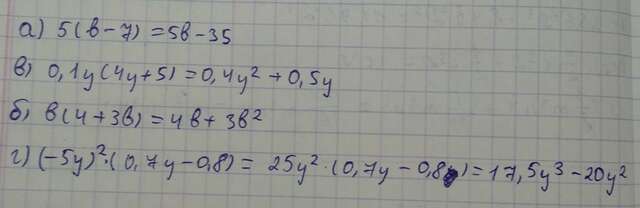 а) 5(в-7)=5в-35
в) 0,1y(4y+5)=0,4y²+0,5y
б) в(4+3в)=4в+3в²
г) (-5y)²·(0,7y-0,8)= 25y²·(0,7y-0,8)=17,5y³-20y²